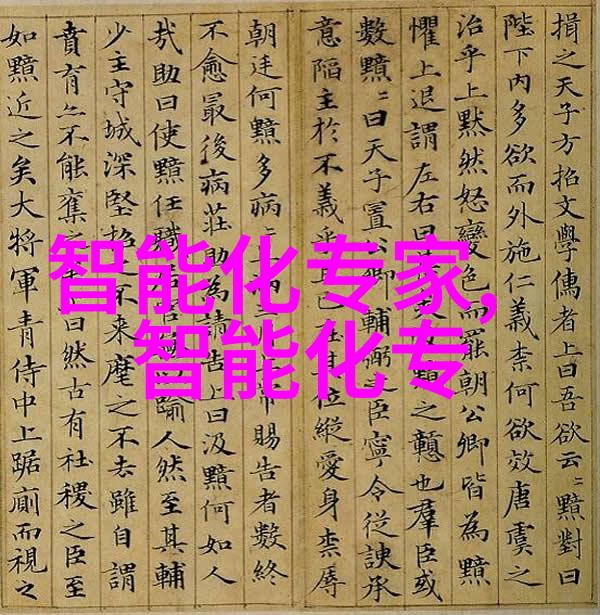 揖之天子方招文學儒者上曰吾欲云〻黯對曰
陛下内多欲而外施仁義柰何欲效唐虞之
治乎上黙然怒變色而罷朝公卿皆為黯
懼上退謂左右曰甚矣黯之戇也羣臣或
數黯〻曰天子置公卿輔弼之臣寧令從諛承
意陷主於不義乎且已在其位縱愛身柰辱
朝廷何黯多病〻且滿三月上常賜告者數終
不愈最後病莊助為請告上曰汲黯何如人
哉助曰使黯任職居官踰人然至其輔
少主守城深堅招之不来麾之不去雖自謂
賁育亦不能奪之曰然古有社稷之臣至
如黯近之矣大將軍青侍中上踞廁而視之
智能化专家,
智能化专